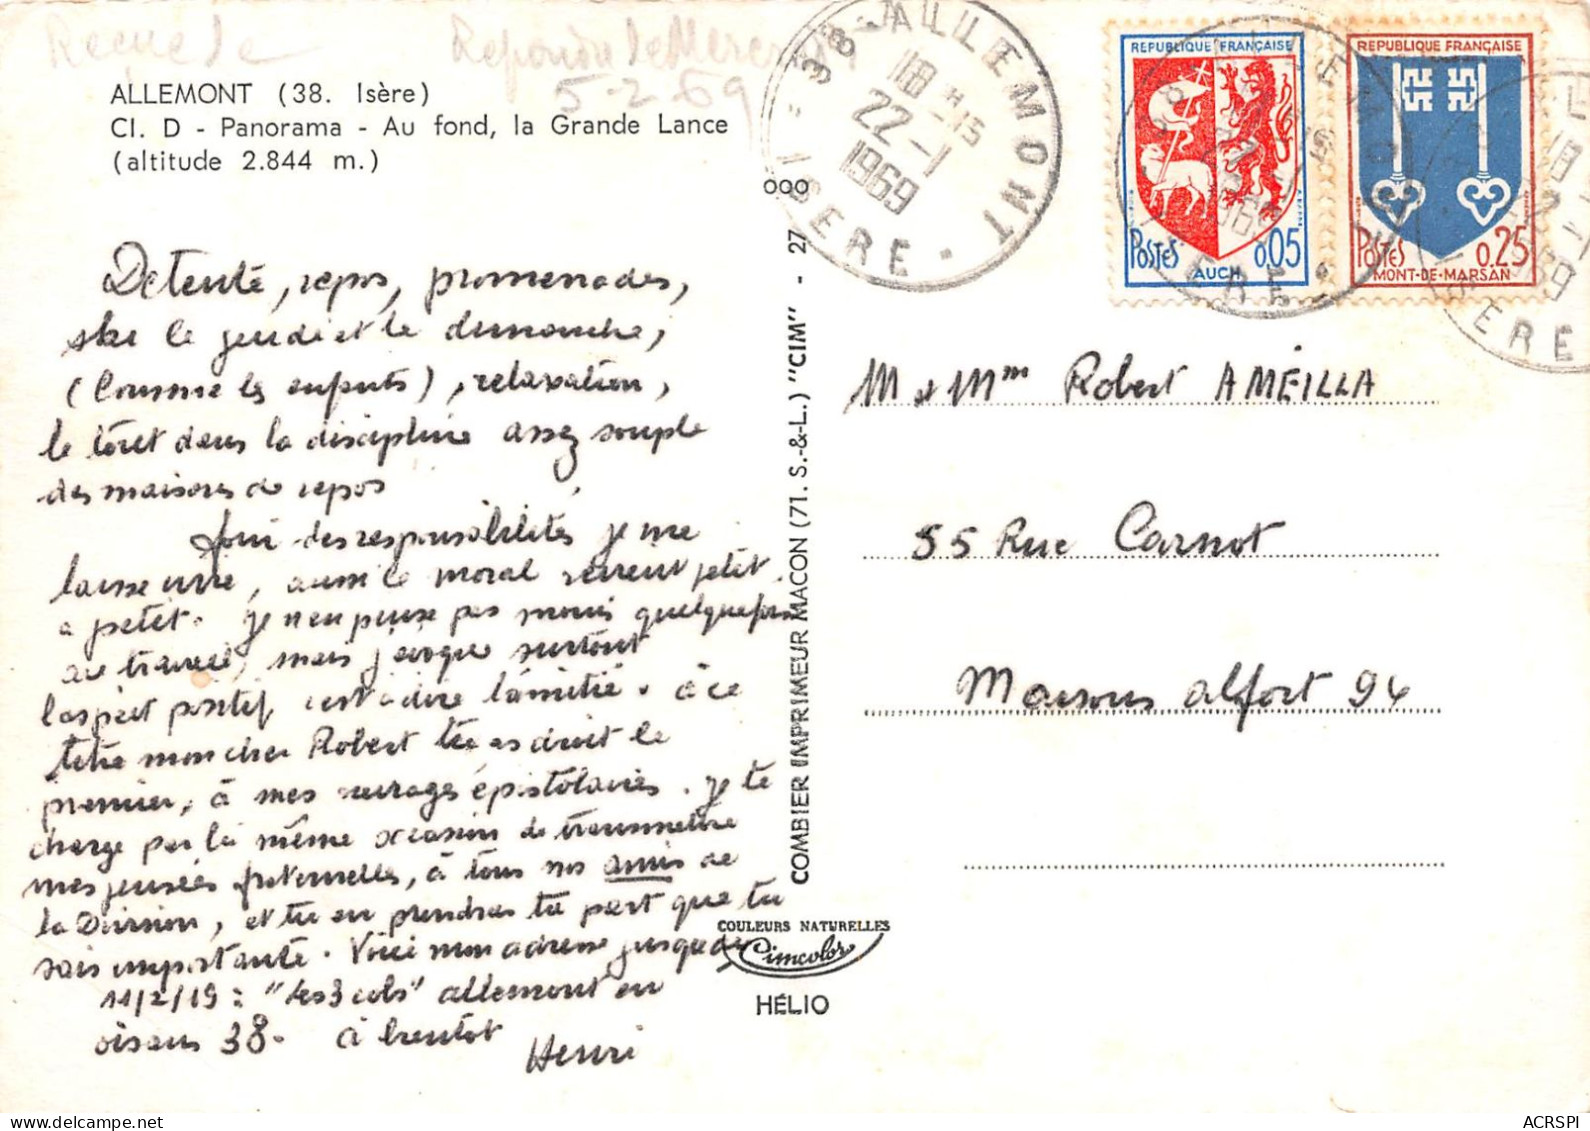 Reçue le
Reponse le Mercredi
5-2-69
ALLEMONT (38. Isère)
Cl. D - Panorama - Au fond, la Grande Lance
(altitude 2.844 m.)
38 - ALLEMONT
18 H -15
22-1
1969
ISERE
REPUBLIQUE FRANÇAISE
POSTES 0,05
AUCH
REPUBLIQUE FRANÇAISE
POSTES 0,25
MONT-DE-MARSAN
000
COMBIER IMPRIMEUR MACON (71. S.-&-L.) "CIM" - 27
Detente, repos, promenades,
ski le jeudi et le dimanche,
(Comme les enfants), relaxation,
le tout dans la discipline assez souple
des maisons de repos
Loin des responsabilités je me
laisse vivre, aussi le moral revient petit
a petit. Je n'en pense pas moins quelquefois
au travail, mais j'évoque surtout
l'aspect positif c'est a dire l'amitié. à ce
titre mon cher Robert tu as droit le
premier, à mes ouvrages épistolaires. Je te
charge par la même occasion de transmettre
mes pensées fraternelles, à tous nos amis de
la Division, et tu en prendras ta part que tu
sais importante. Voici mon adresse jusque au
11/2/19 : "les 3 cols" allemont en
oisans 38. à bientot
Henri
M et Mme Robert AMÉILLA
55 Rue Carnot
Maisons alfort 94
COULEURS NATURELLES
Cimcolor
HÉLIO
ACRSPI